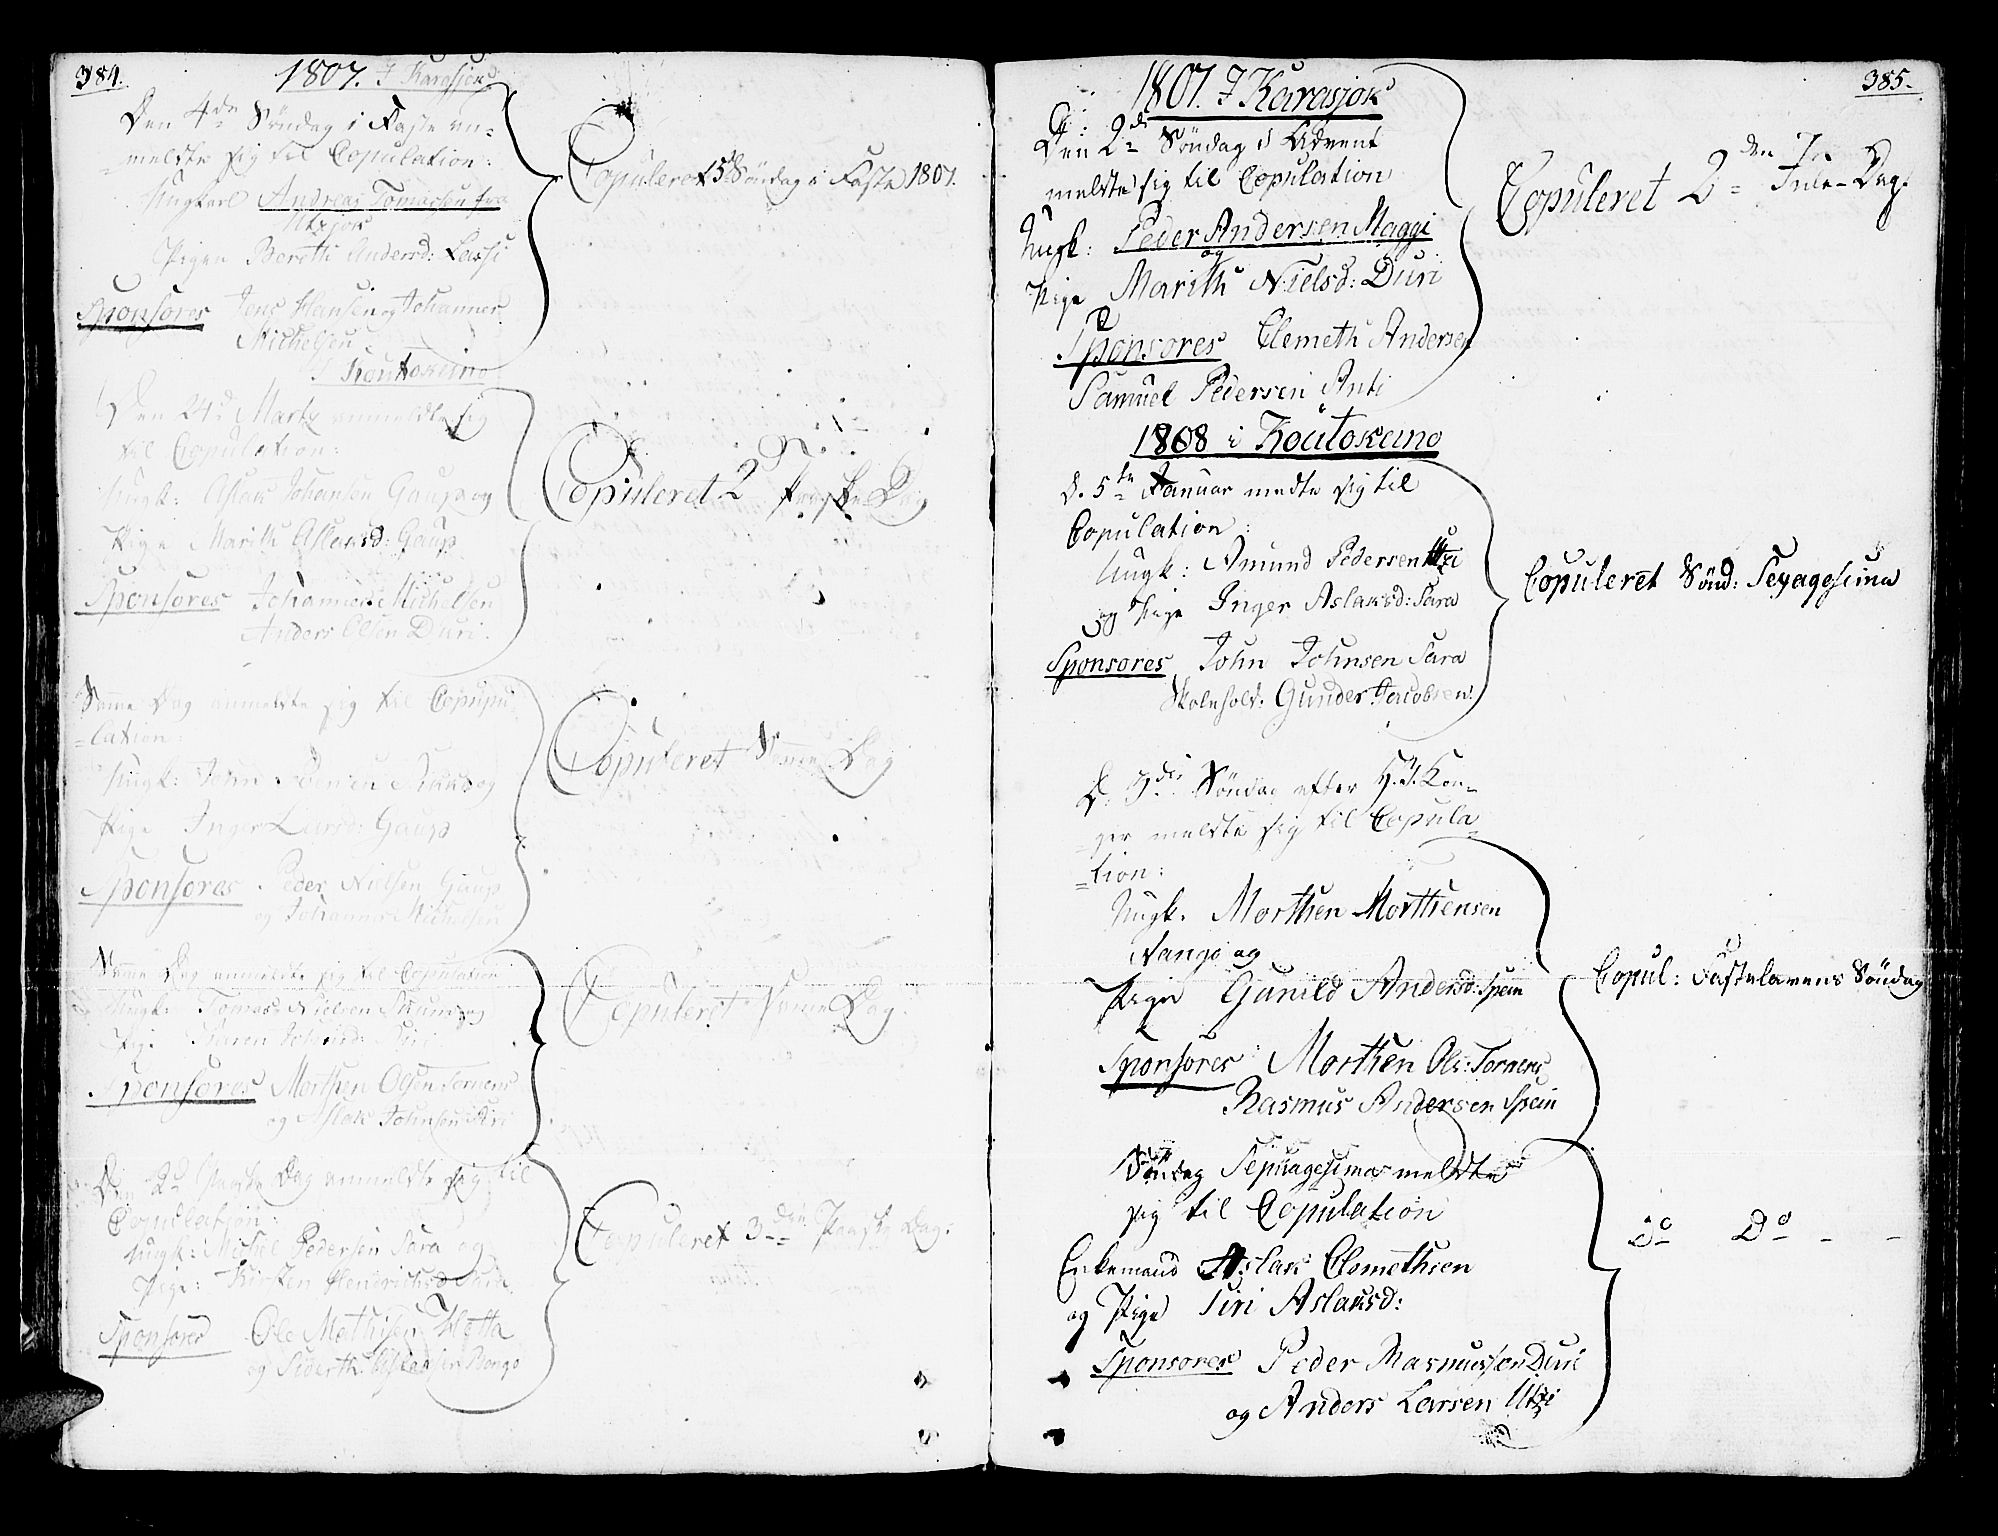 384.
1807. I Karasjok
Den 4de Söndag i Faste an-
meldte sig til Copulation:
Ungkarl Andreas Tomassen fra
Utsjok
Pigen Bereth Andersd: Lassi
Sponsores Jens Hansen og Johannes
Michelsen
Copuleret 5te Söndag i Faste 1807.
I Koutokeino
Den 24d Marty anmeldte sig
til Copulation:
Ungk: Aslak Johansen Gaup og
Pige Marith Aslaksd: Gaup
Sponsores Johannes Michelsen
Anders Olsen Duri.
Copuleret 2 Paaske Dag
Samme Dag anmeldte sig til Copupu-
=lation:
Ungk: John og
Pige Inger Larsd: Gaup
Sponsores Peder Nielsen Gaup
og Johannes Michelsen
Copuleret Samme Dag
Samme Dag anmeldte sig til Copulation
Ungk: Tomas Nielsen og
Pige Karen Siri
Sponsores Morthen Olsen Tornens
og Aslak Johnsen Siri
Copuleret Samme Dag.
Den 2d Paaske Dag anmeldte sig til
Copulation:
Ungk: Michel Pedersen Sara og
Pige: Kirsten Hendrichsd
Sponsores Ole Mathisen Hætta
og Bongo
Copuleret 3den Paaske Dag.
385.
1807. I Karasjok
Den 2d Söndag i Advent
meldte sig til Copulation
Ungk: Peder Andersen Maggi
og
Pige Marith Nielsd: Duri
Sponsores Clemeth Andersen
Samuel Pedersen Anti
Copuleret 2den Jule-Dag.
1808 i Koutokeino
d. 5te Januar meldte sig til
Copulation:
Ungk: Amund Pedersen Utzi
og Pige Inger Aslaksd: Sara
Sponsores John Johnsen Sara
Skolehold: Gunder Jacobsen
Copuleret Sönd: Sexagesima
D. 3die Söndag efter H. 3. Kon-
=ger meldte sig til Copula
=tion:
Ungk. Morthen Morthensen
Nango og
Pige Gunild Andersd: Spein
Sponsores: Morthen Ols: Tornens
Rasmus Andersen Spein
Copul: Fastelavens Söndag
Söndag Septuagesima meldte
sig til Copulation
Enkemand Aslak Clemethsen
og Pige Siri Aslaksd:
Sponsores Peder Rasmussen Duri
og Anders Larsen Utzi
Do Do - -